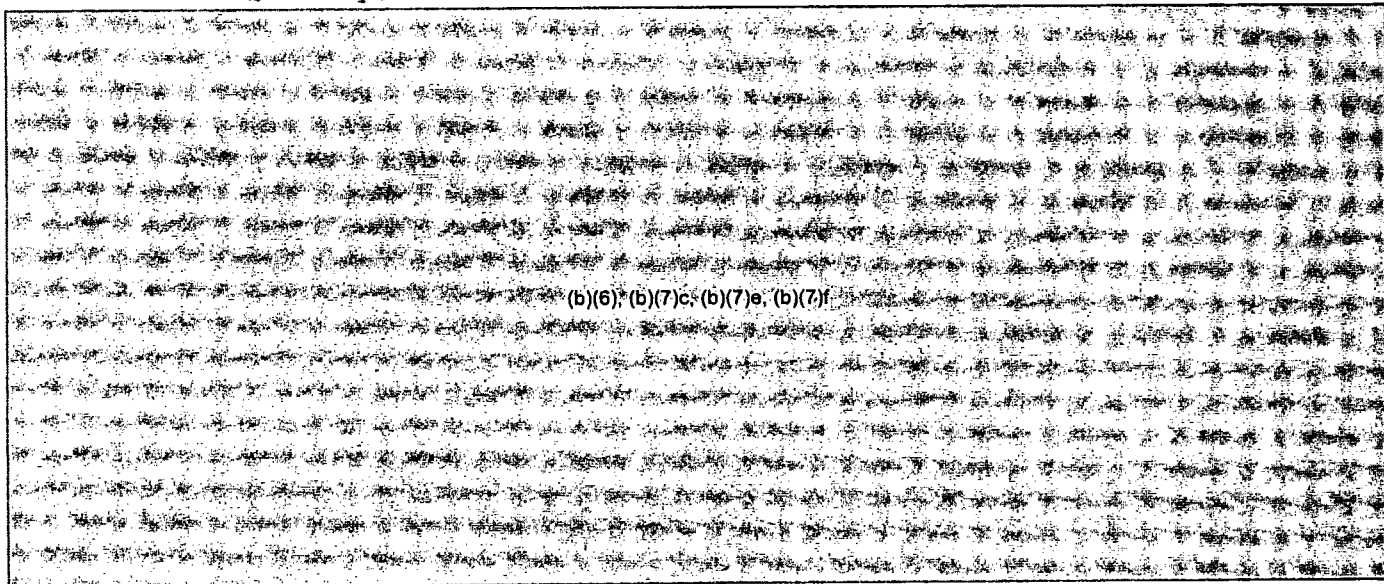 (b)(6), (b)(7)c, (b)(7)e, (b)(7)f